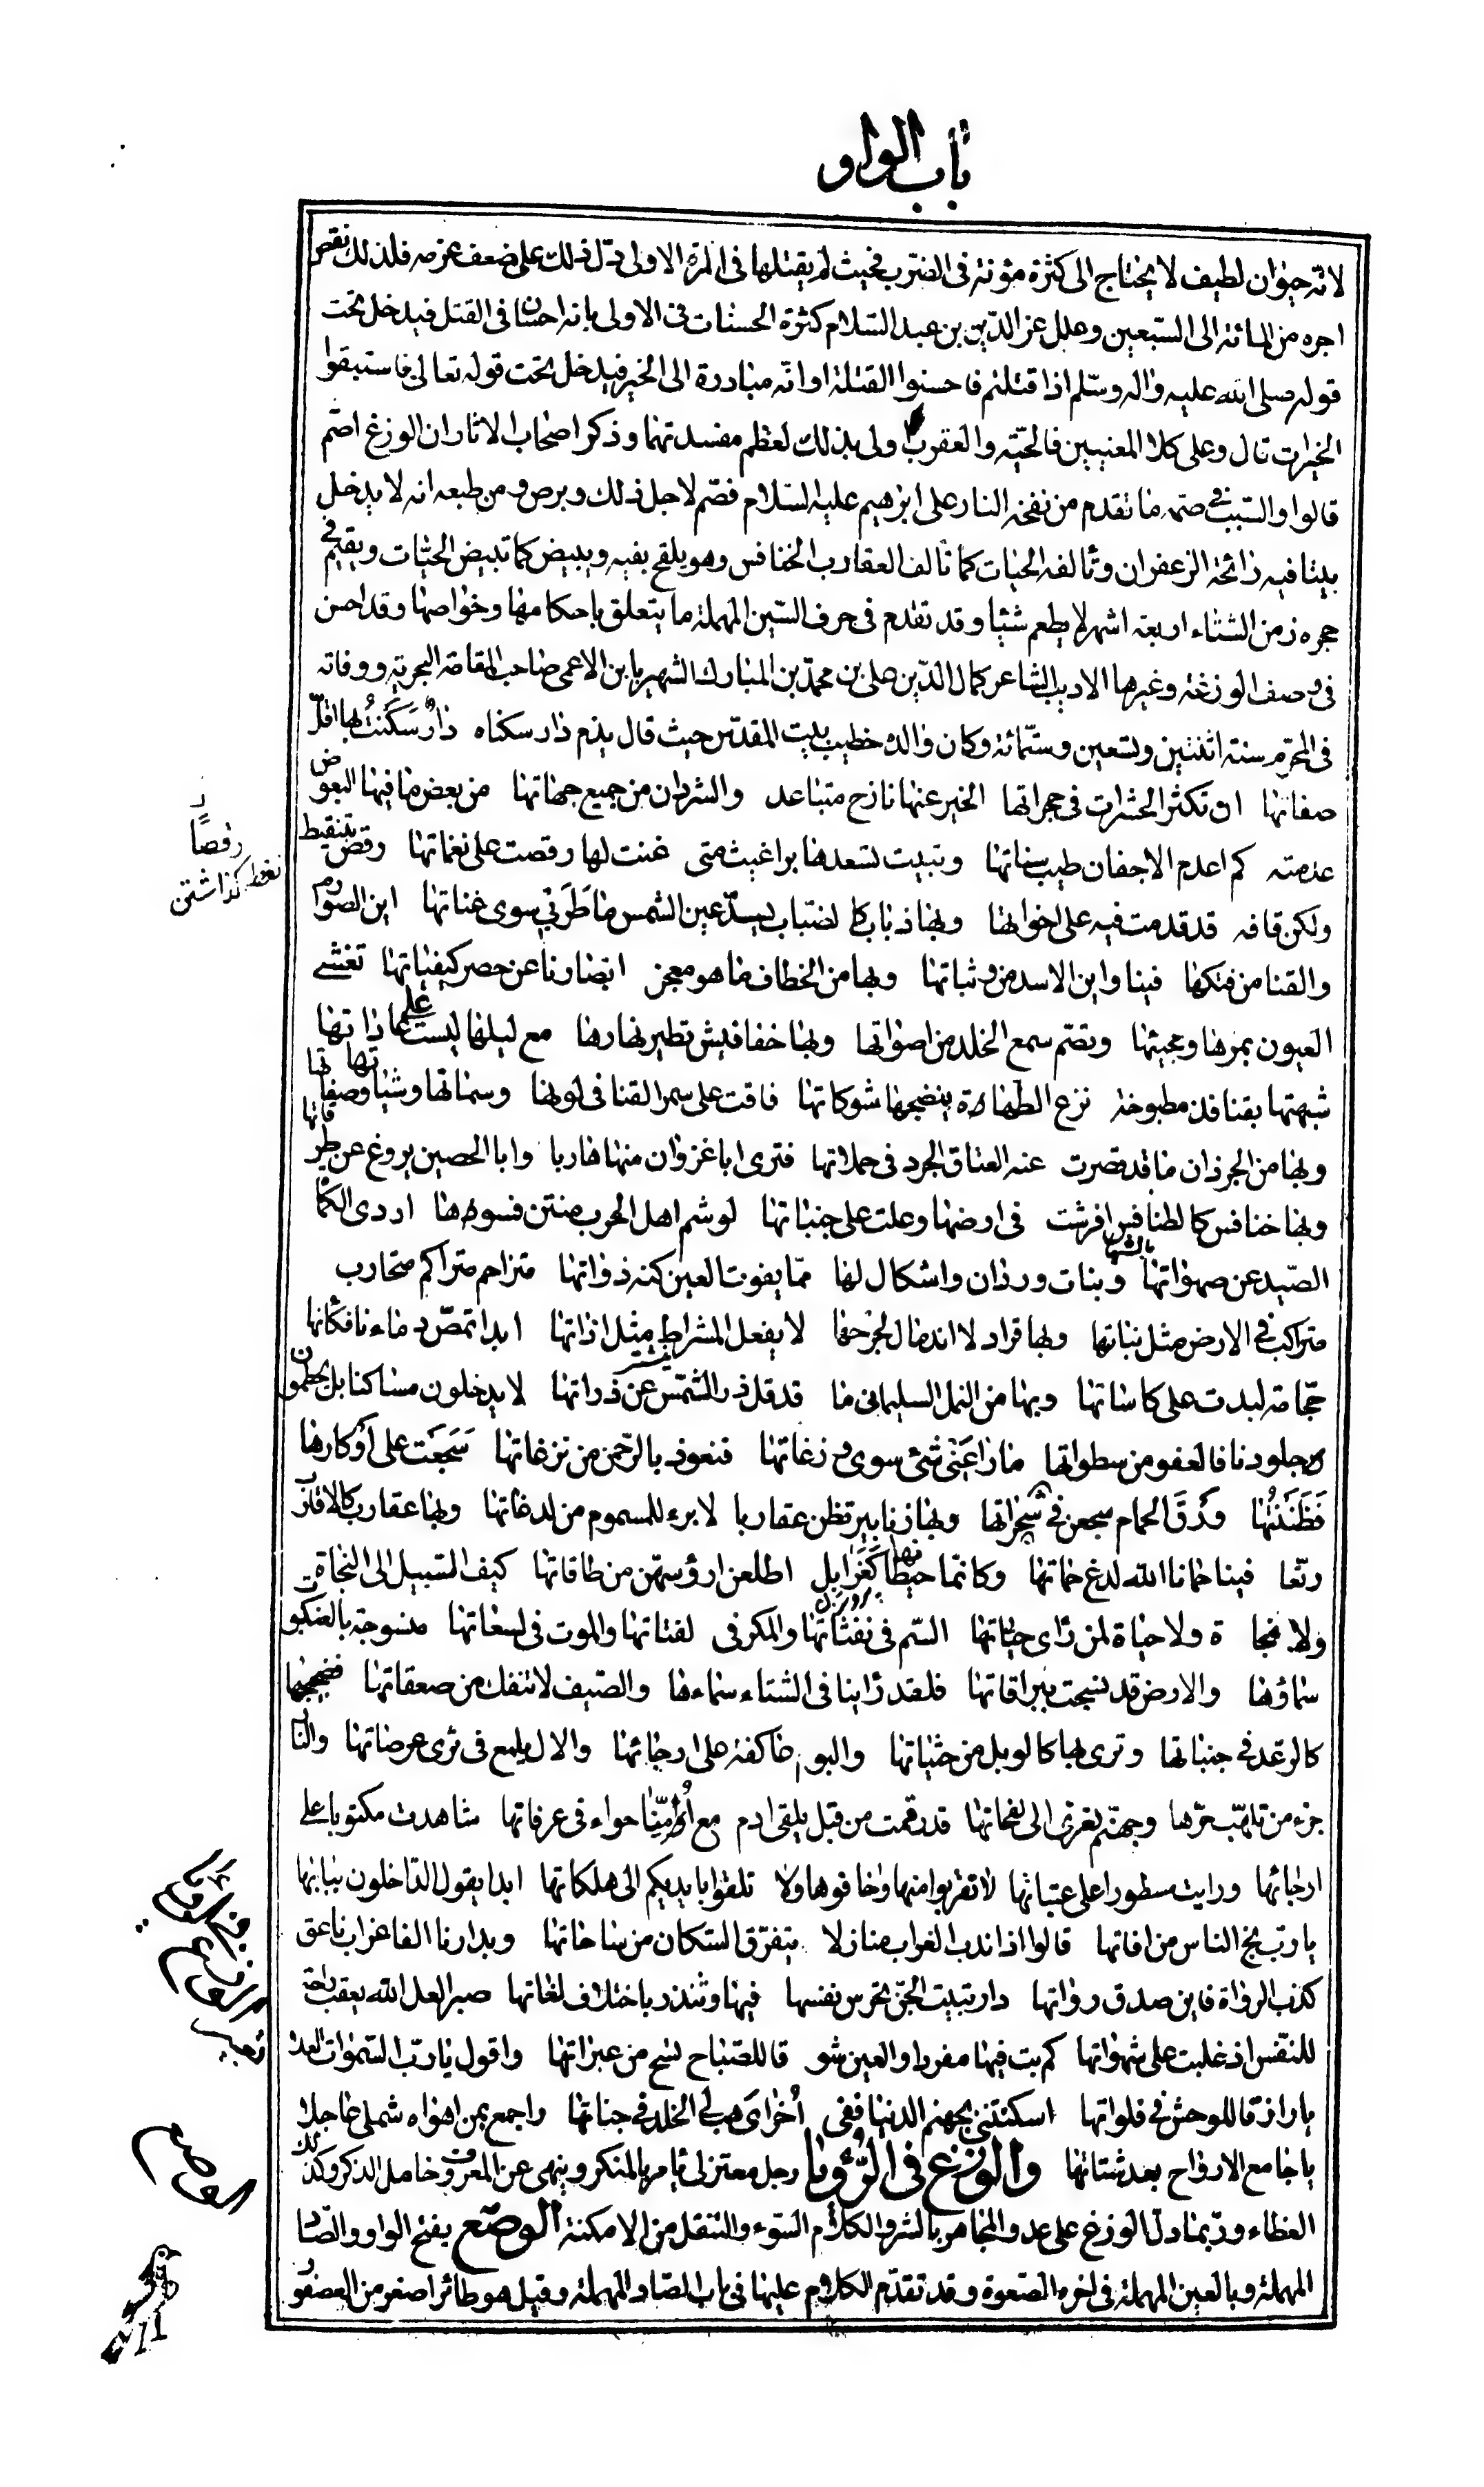 باب الواو
لانه حيوان لطيف لا يحتاج الى كثرة مؤنة فى الضرب فحيث لم يقتلها فى المرة الاولى دل ذلك على ضعف عزمه فلذلك نقص
اجره من المائة الى السبعين وعلل عز الدين بن عبد السلام كثرة الحسنات فى الاولى بانه احسان فى القتل فيدخل تحت
قوله صلى الله عليه واله وسلم اذا قتلتم فاحسنوا القتلة او انه مبادرة الى الخير فيدخل تحت قوله تعالى فاستبقوا
الخيرات قال وعلى كلا المعنيين فالحية والعقرب اولى بذلك لعظم مفسدتهما وذكر اصحاب الاثار ان الوزغ اصم
قالوا والسبب فى صممه ما تقدم من نفخه النار على ابرهيم عليه السلام فصم لاجل ذلك وبرص ومن طبعه انه لا يدخل
بيتا فيه رائحة الزعفران وتالفه الحيات كما تالف العقارب الخنافس وهو يلقح بفيه ويبيض كما تبيض الحيات ويقيم فى
حجره زمن الشتاء اربعة اشهر لا يطعم شيئا وقد تقدم فى حرف السين المهملة ما يتعلق باحكامها وخواصها وقد احسن
فى وصف الوزغة وغيرها الاديب الشاعر كمال الدين على بن محمد بن المبارك الشهير بابن الاعمى صاحب المقامة البحرية ووفاته
فى المحرم سنة اثنتين وتسعين وستمائة وكان والده خطيب بيت المقدس حيث قال يذم دار سكناه دار سكنت بها اقل
صفاتها ان تكثر الحشرات فى حجراتها الخير عنها نازح متباعد والشر دان من جميع جهاتها من بعض ما فيها البعوض
عدمته كم اعدم الاجفان طيب سناتها وتبيت تسعدها براغيث متى غنت لها رقصت على نغماتها رقص بتنقيط
ولكن قافه قد قدمت فيه على اخواتها وبها ذباب كالضباب يسد عين الشمس ما طربى سوى غناتها اين الصوارم
والقنا من فتكها فينا واين الاسد من وثباتها وبها من الخطاف ما هو معجز ابصارنا عن حصر كيفياتها تغشى
العيون بمرها ومجيئها وتصم سمع الخلد من اصواتها وبها خفافيش تطير نهارها مع ليلها ليست على عاداتها
شبهتها بقنافذ مطبوخة نزع الطهاة بنضجها شوكاتها فاقت على سمر القنا فى لونها وسماتها وشياتها وصفاتها
وبها من الجرذان ما قد قصرت عنه العتاق الجرد فى حملاتها فترى ابا غزوان منها هاربا وابا الحصين يروغ عن طرقاتها
وبها خنافس كالطنافس افرشت فى ارضها وعلت على جنباتها لو شم اهل الحرب منتن فسوها اردى الكماة
الصيد عن صهواتها وبنات وردان واشكال لها مما يفوت العين كنه ذواتها متزاحم متراكم متحارب
متراكب فى الارض مثل نباتها وبها قراد لا اندمال لجرحها لا يفعل المشراط مثل اذاتها ابدا تمص دماءنا فكانها
حجامة لبدت على كاساتها وبها من النمل السليمانى ما قد قل ذر الشمس عن ذراتها لا يدخلون مساكنا بل يحطمون
جلودنا فالعفو من سطواتها ما راعنى شئ سوى وزغاتها فنعوذ بالرحمن من نزغاتها سجعت على اوكارها
فظننتها ورق الحمام سجعن فى شجراتها وبها زنابير تظن عقاربا لا برء للمسموم من لدغاتها وبها عقارب كالاقارب
رتعا فينا حمانا الله لدغ حماتها وكانما حيطانها كغرابل اطلعن ارؤسهن من طاقاتها كيف السبيل الى النجاة
ولا نجاة ولا حياة لمن راى حياتها السم فى نفثاتها والمكر فى لفتاتها والموت فى لسعاتها منسوجة بالعنكبوت
سماؤها والارض قد نسجت ببراقاتها فلقد راينا فى الشتاء سماءها والصيف لا تنفك من صعقاتها فضجيجها
كالرعد فى جنباتها وترى بها كالوبل من حثياتها والبوم عاكفة على ارجائها والال يلمع فى ثرى عرصاتها والنار
جزء من تلهب حرها وجهنم تعزى الى لفحاتها قد رقمت من قبل يلقى ادم مع امنا حواء فى عرفاتها شاهدت مكتوبا على
ارجائها ورايت سطورا على عتباتها لا تقربوا منها وخافوها ولا تلقوا بايديكم الى هلكاتها ابدا يقول الداخلون ببابها
يا رب نج الناس من افاتها قالوا اذا ندب الغراب منازلا يتفرق السكان من ساحاتها وبدارنا الفا غراب ناعق
كذب الرواة فاين صدق رواتها دار تبيت الجن تحرس نفسها فيها وتنذر باختلاف لغاتها صبرا لعل الله يعقب راحة
للنفس اذ غلبت على شهواتها كم بت فيها مفردا والعين شوقا للصباح تسح من عبراتها واقول يا رب السموات العلا
يا رازقا للوحش فى فلواتها اسكنتنى بجهنم الدنيا ففى اخراى هب لى الخلد فى جناتها واجمع بمن اهواه شملى عاجلا
يا جامع الارواح بعد شتاتها والوزغ فى الرؤيا رجل معتزلى يامر بالمنكر وينهى عن المعروف خامل الذكر وكذلك
العظاء وربما دل الوزغ على عدو المجاهر بالشر والكلام السوء والتنقل من الامكنة الوصع بفتح الواو والصاد
المهملة وبالعين المهملة فى اخره الصعوة وقد تقدم الكلام عليها فى باب الصاد المهملة وقيل هو طائر اصغر من العصفور
رقصا
نقط گذاشتن
تعبير
الوصع